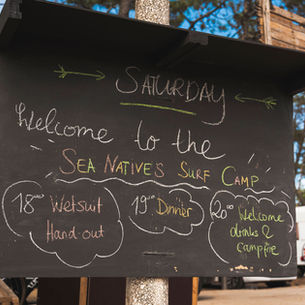 SATURDAY
Welcome to the
SEA NATIVE'S SURF CAMP
18⁰⁰ Wetsuit
Hand out
19⁰⁰ Dinner
20⁰⁰
Welcome
drinks &
campfire